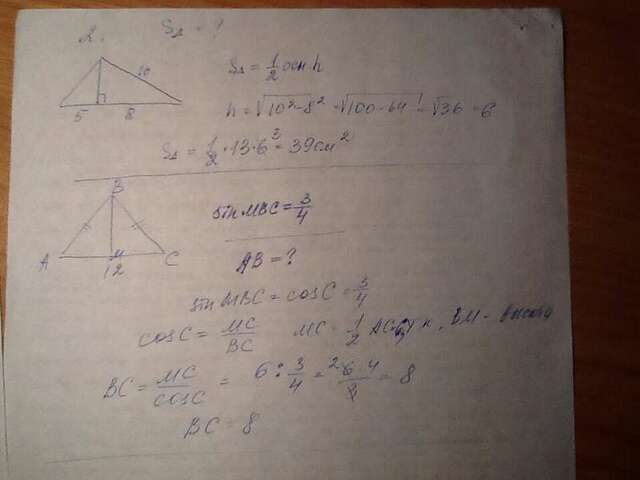 2. S△ = ?
10
5 8
S△ = 1/2 осн h
h = √10² - 8² = √100 - 64 = √36 = 6
S△ = 1/2 · 13 · 6³ = 39 см²
B
A M C
12
sin MBC = 3/4
AB = ?
sin MBC = cos C = 3/4
cos C = MC/BC MC = 1/2 AC , BM - высота
BC = MC/cos C = 6 : 3/4 = ²6 · 4/3 = 8
BC = 8